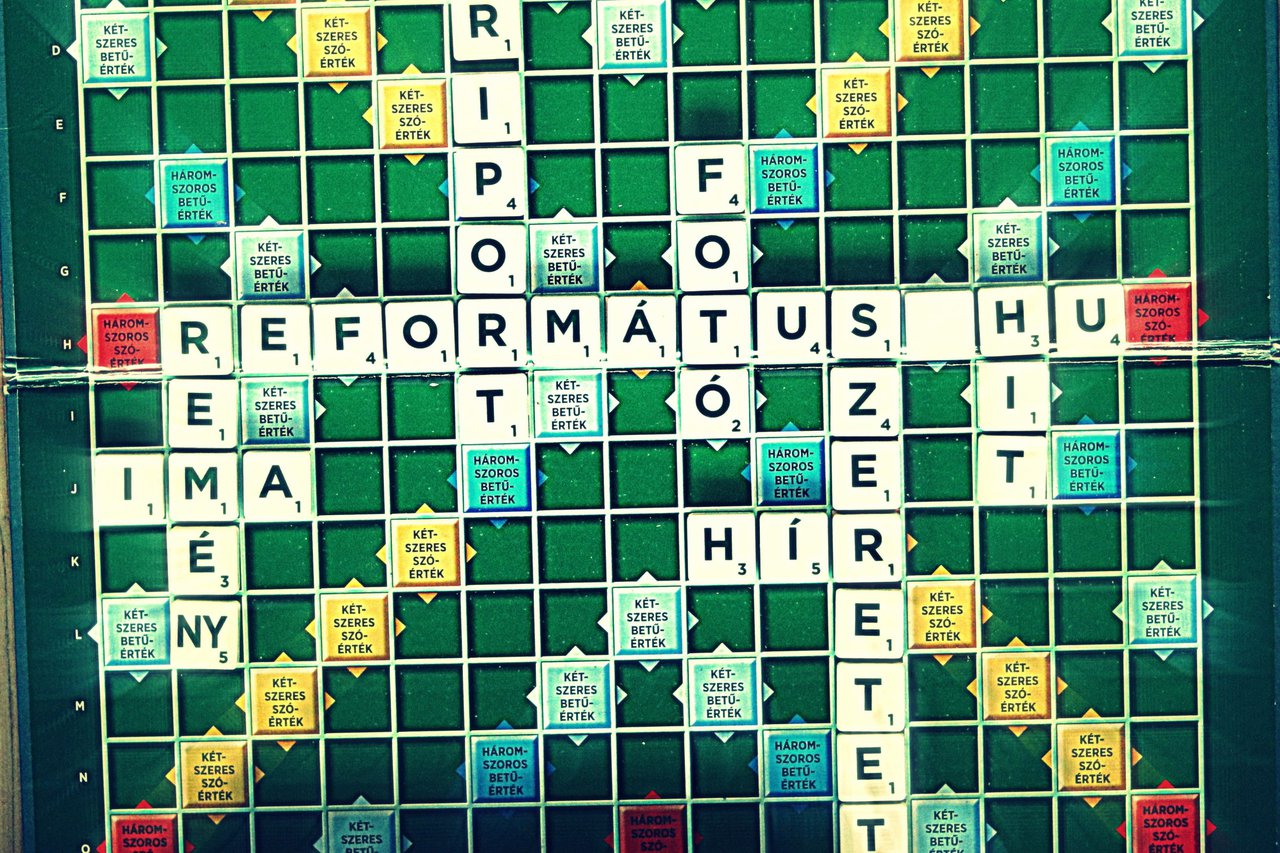 D KÉT-SZERES BETŰ-ÉRTÉK KÉT-SZERES SZÓ-ÉRTÉK R1 KÉT-SZERES BETŰ-ÉRTÉK KÉT-SZERES SZÓ-ÉRTÉK KÉT-SZERES BETŰ-ÉRTÉK
E KÉT-SZERES SZÓ-ÉRTÉK I1 KÉT-SZERES SZÓ-ÉRTÉK
F HÁROM-SZOROS BETŰ-ÉRTÉK P4 F4 HÁROM-SZOROS BETŰ-ÉRTÉK HÁROM-SZOROS BETŰ-ÉRTÉK
G KÉT-SZERES BETŰ-ÉRTÉK O1 KÉT-SZERES BETŰ-ÉRTÉK O1 KÉT-SZERES BETŰ-ÉRTÉK
H HÁROM-SZOROS SZÓ-ÉRTÉK R1 E1 F4 O1 R1 M1 Á1 T1 U4 S1 H3 U4 HÁROM-SZOROS SZÓ-ÉRTÉK
I E1 KÉT-SZERES BETŰ-ÉRTÉK T1 KÉT-SZERES BETŰ-ÉRTÉK Ó2 Z4 I1
J I1 M1 A1 HÁROM-SZOROS BETŰ-ÉRTÉK HÁROM-SZOROS BETŰ-ÉRTÉK E1 T1 HÁROM-SZOROS BETŰ-ÉRTÉK
K É3 KÉT-SZERES SZÓ-ÉRTÉK H3 Í5 R1
L KÉT-SZERES BETŰ-ÉRTÉK NY5 KÉT-SZERES SZÓ-ÉRTÉK KÉT-SZERES BETŰ-ÉRTÉK E1 KÉT-SZERES SZÓ-ÉRTÉK KÉT-SZERES BETŰ-ÉRTÉK
M KÉT-SZERES SZÓ-ÉRTÉK KÉT-SZERES BETŰ-ÉRTÉK KÉT-SZERES BETŰ-ÉRTÉK T1 KÉT-SZERES SZÓ-ÉRTÉK
N KÉT-SZERES SZÓ-ÉRTÉK HÁROM-SZOROS BETŰ-ÉRTÉK HÁROM-SZOROS BETŰ-ÉRTÉK E1 KÉT-SZERES SZÓ-ÉRTÉK
O HÁROM-SZOROS KÉT-SZERES BETŰ- HÁROM-SZOROS T1 KÉT-SZERES BETŰ- HÁROM-SZOROS